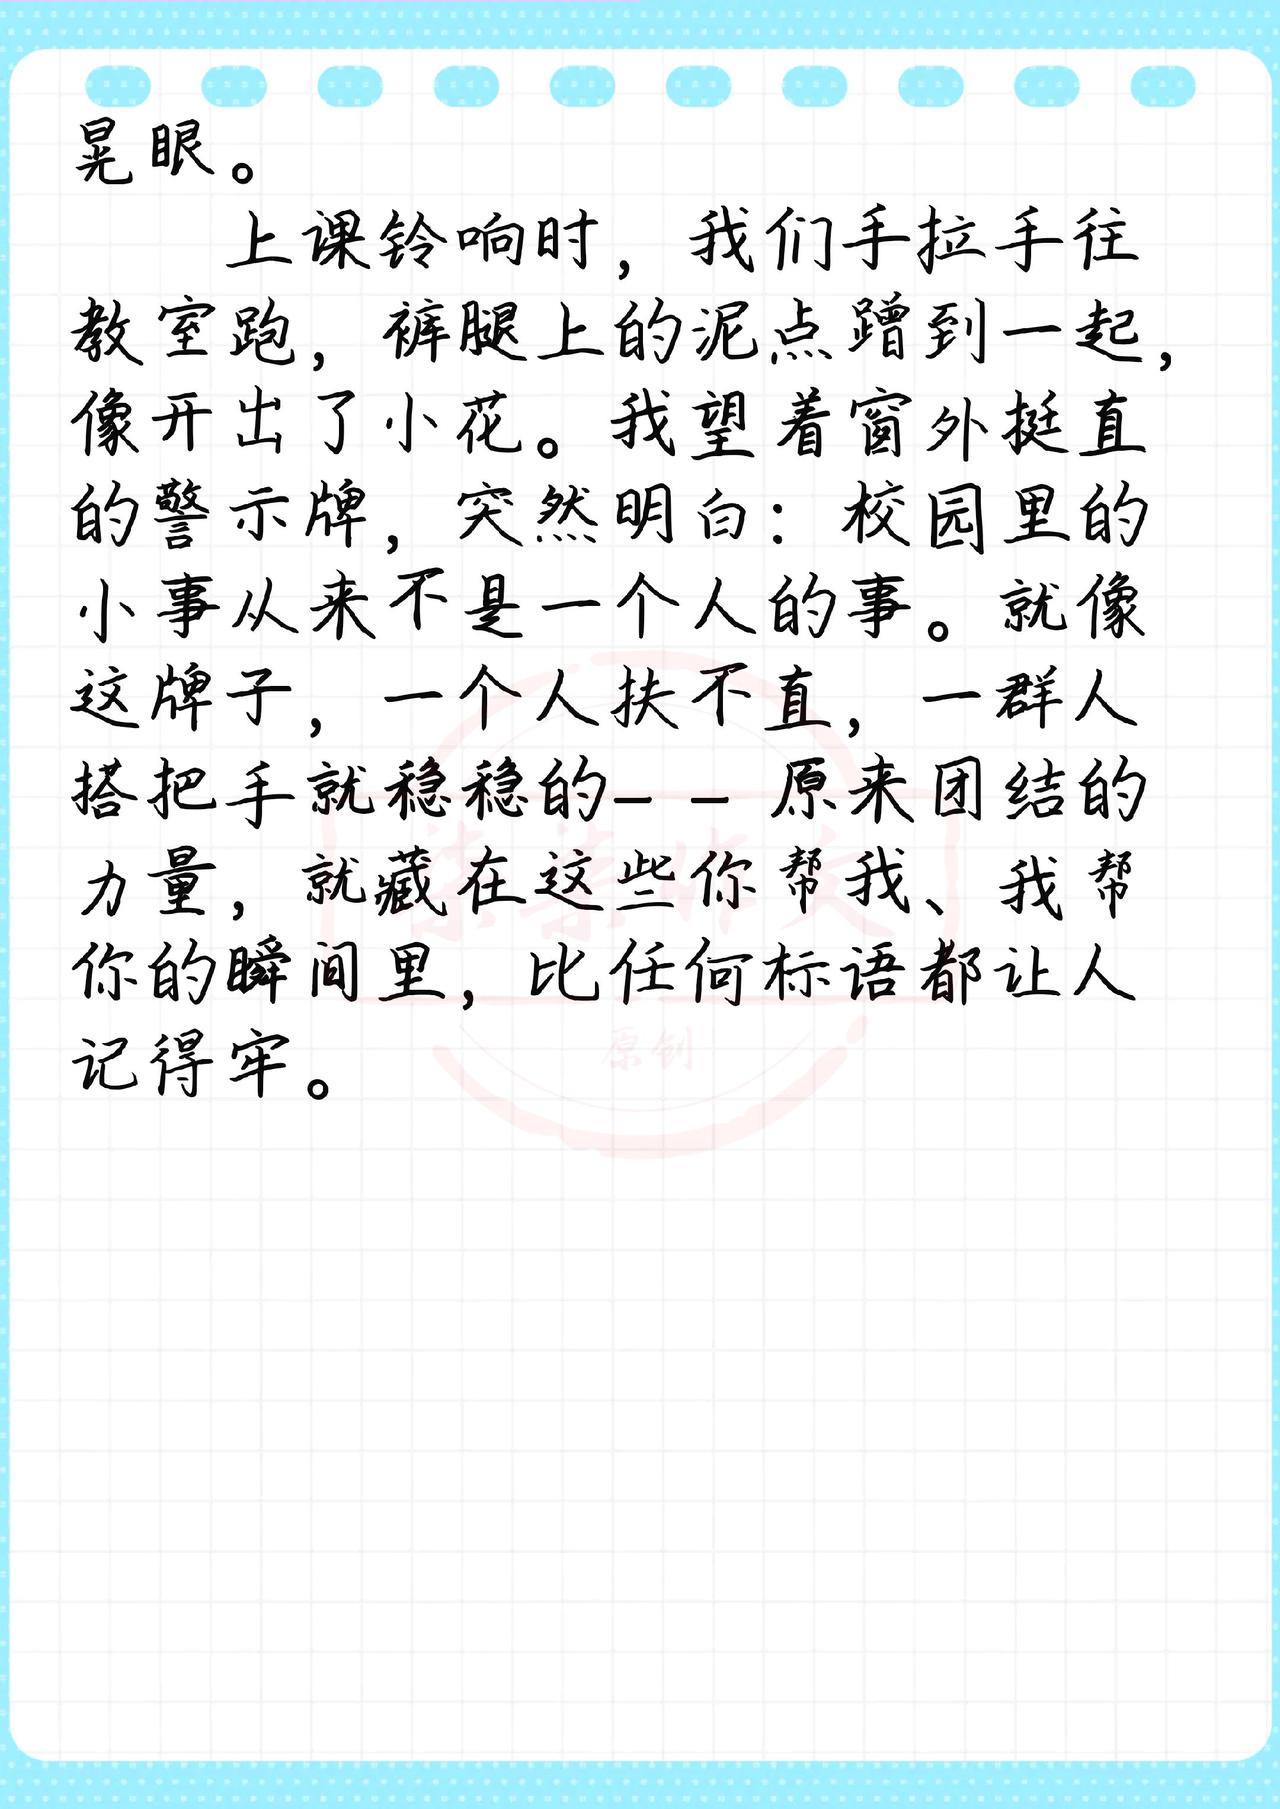 晃眼。
上课铃响时，我们手拉手往
教室跑，裤腿上的泥点蹭到一起，
像开出了小花。我望着窗外挺直
的警示牌，突然明白：校园里的
小事从来不是一个人的事。就像
这牌子，一个人扶不直，一群人
搭把手就稳稳的——原来团结的
力量，就藏在这些你帮我、我帮
你的瞬间里，比任何标语都让人
记得牢。
柒柒作文
原创